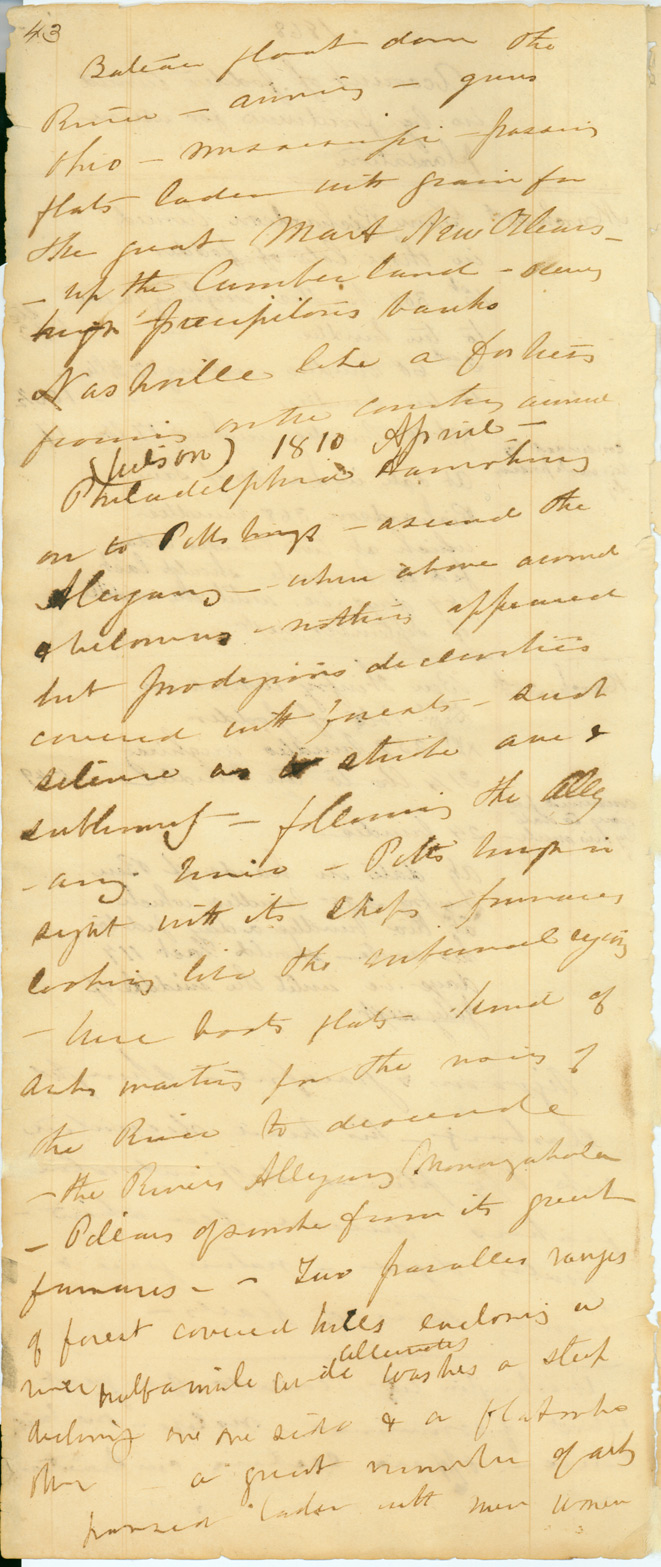 43
Bateau float down the
River — arrives — guns
Ohio — Mississippi — passing
flats laden with grain for
the great Mart New Orleans —
— up the Cumberland —
high precipitous banks
Nashville like a fortress
on the country around
(Wilson) 1810 April —
Philadelphia
on to Pittsburgh — ascend the
Alegany — when above around
& below — nothing appeared
but prodigious declivities
covered with forests — such
silence as strike awe &
sublimity — following the Alleg
-any River — Pittsburgh in
sight with its ships — furnaces
looking like the infernal regions
— here boats flats — kind of
arks waiting for the rising of
the River to descend
— the Rivers Allegany Monongahela
— Pillars of smoke from its great
furnaces — — Two parallel ranges
of forest covered hills enclosing a
river half a mile wide alternately washes a steep
declivity one one side & a flat on the
other — a great number of arks
passed laden with men women